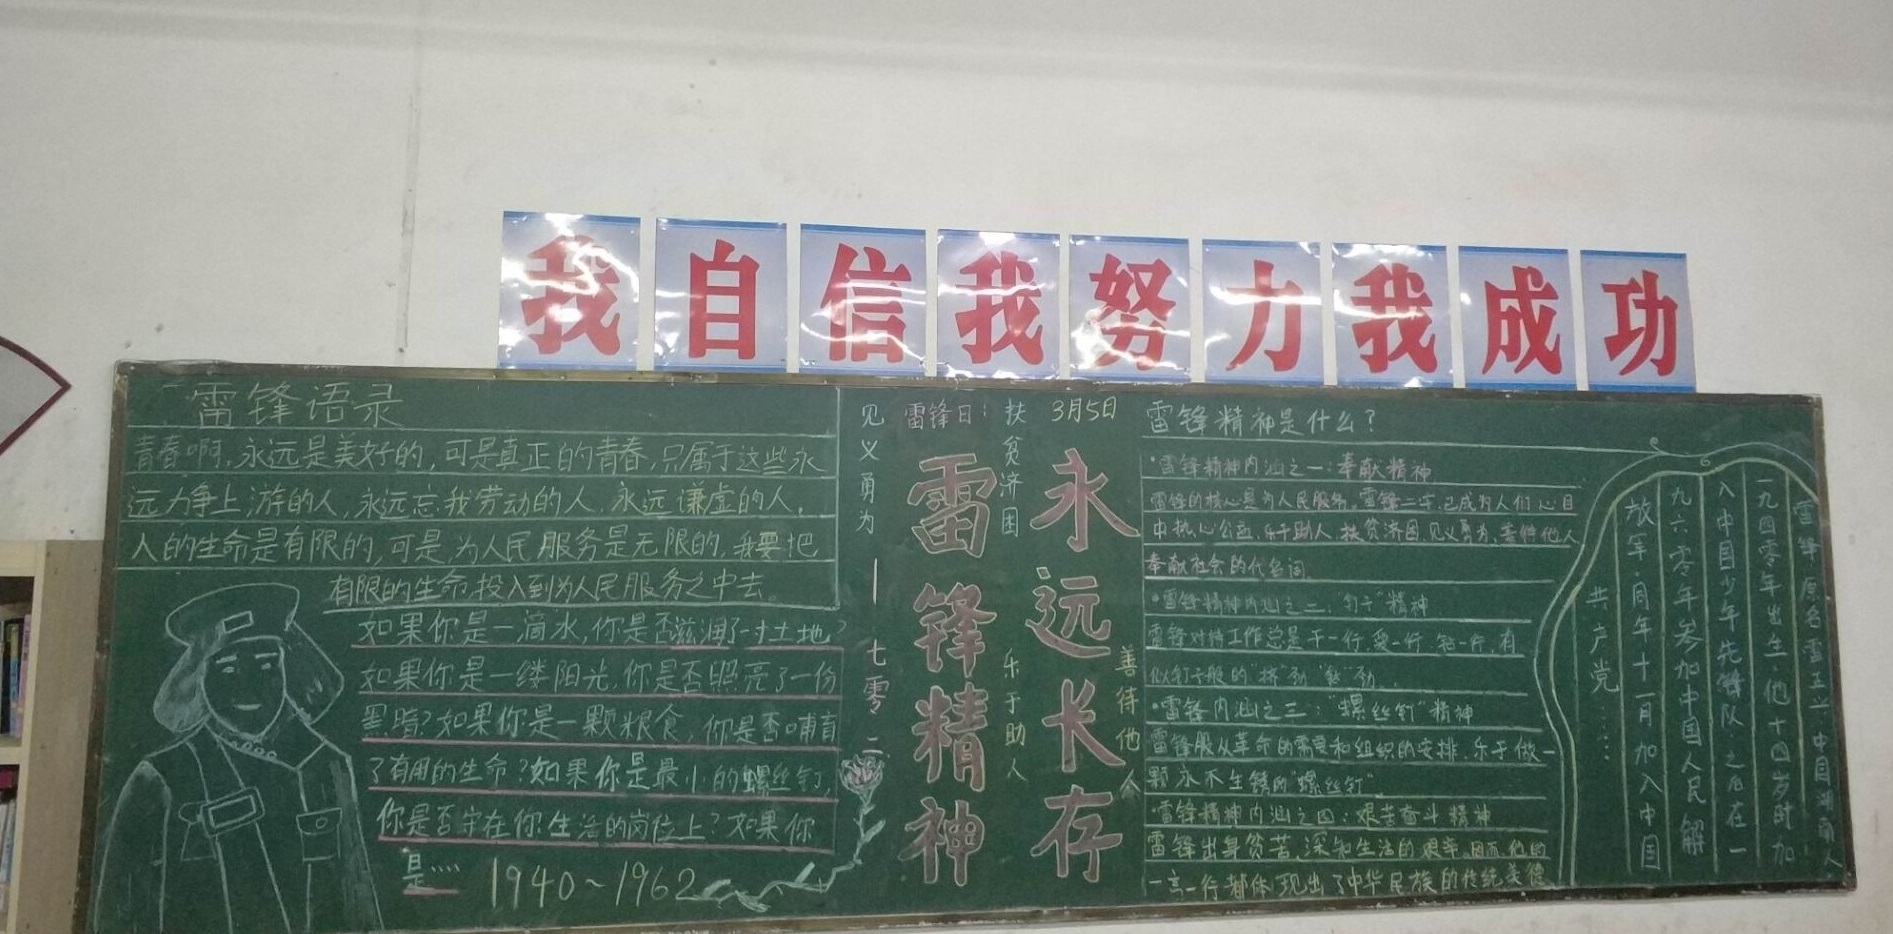 我自信我努力我成功
雷锋语录
青春啊,永远是美好的,可是真正的青春,只属于这些永
远力争上游的人,永远忘我劳动的人,永远谦虚的人。
人的生命是有限的,可是为人民服务是无限的,我要把
有限的生命投入到为人民服务之中去。
如果你是一滴水,你是否滋润了一寸土地?
如果你是一缕阳光,你是否照亮了一份
黑暗?如果你是一颗粮食,你是否哺育
了有用的生命?如果你是最小的螺丝钉,
你是否守在你生活的岗位上?如果你
是……
1940~1962
见义勇为
一七零二
雷锋日:
3月5日
扶贫济困
乐于助人
善待他人
雷锋精神
永远长存
雷锋精神是什么?
·雷锋精神内涵之一:奉献精神
雷锋的核心是为人民服务。雷锋二字,已成为人们心目
中热心公益,乐于助人,扶贫济困,见义勇为,善待他人
奉献社会的代名词。
·雷锋精神内涵之二:"钉子"精神
雷锋对待工作总是干一行,爱一行,钻一行,有
似钉子般的"挤"劲"钻"劲.
·雷锋内涵之三:"螺丝钉"精神
雷锋服从革命的需要和组织的安排,乐于做一
颗永不生锈的"螺丝钉"
·雷锋精神内涵之四:艰苦奋斗精神
雷锋出身贫苦,深知生活的艰辛,因而他的
一言一行都体现出了中华民族的传统美德
雷锋原名雷正兴,中国湖南人
一九四零年出生,他十四岁时加
入中国少年先锋队,之后在一
九六零年参加中国人民解
放军,同年十一月加入中国
共产党……